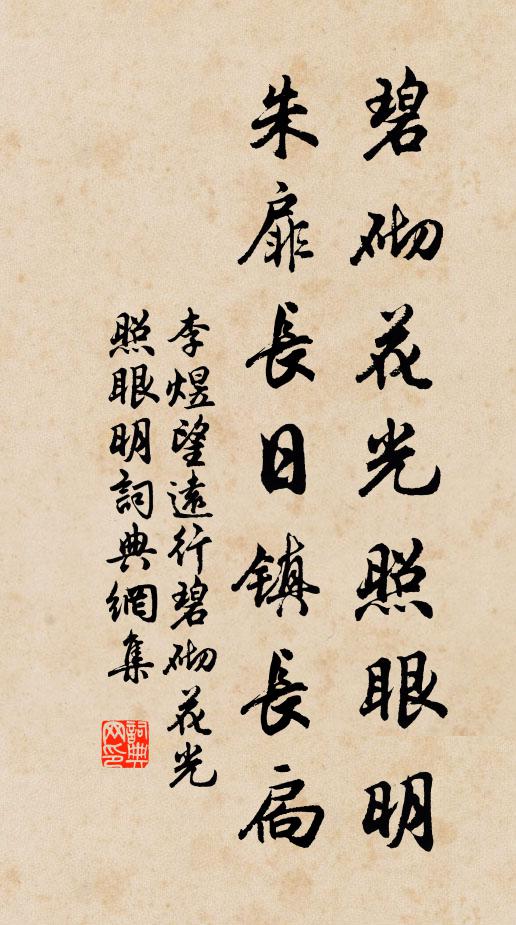 碧砌花光照眼明
朱扉長日镇長扃
李煜望遠行碧砌花光
照眼明詞典網集
詞典
网印